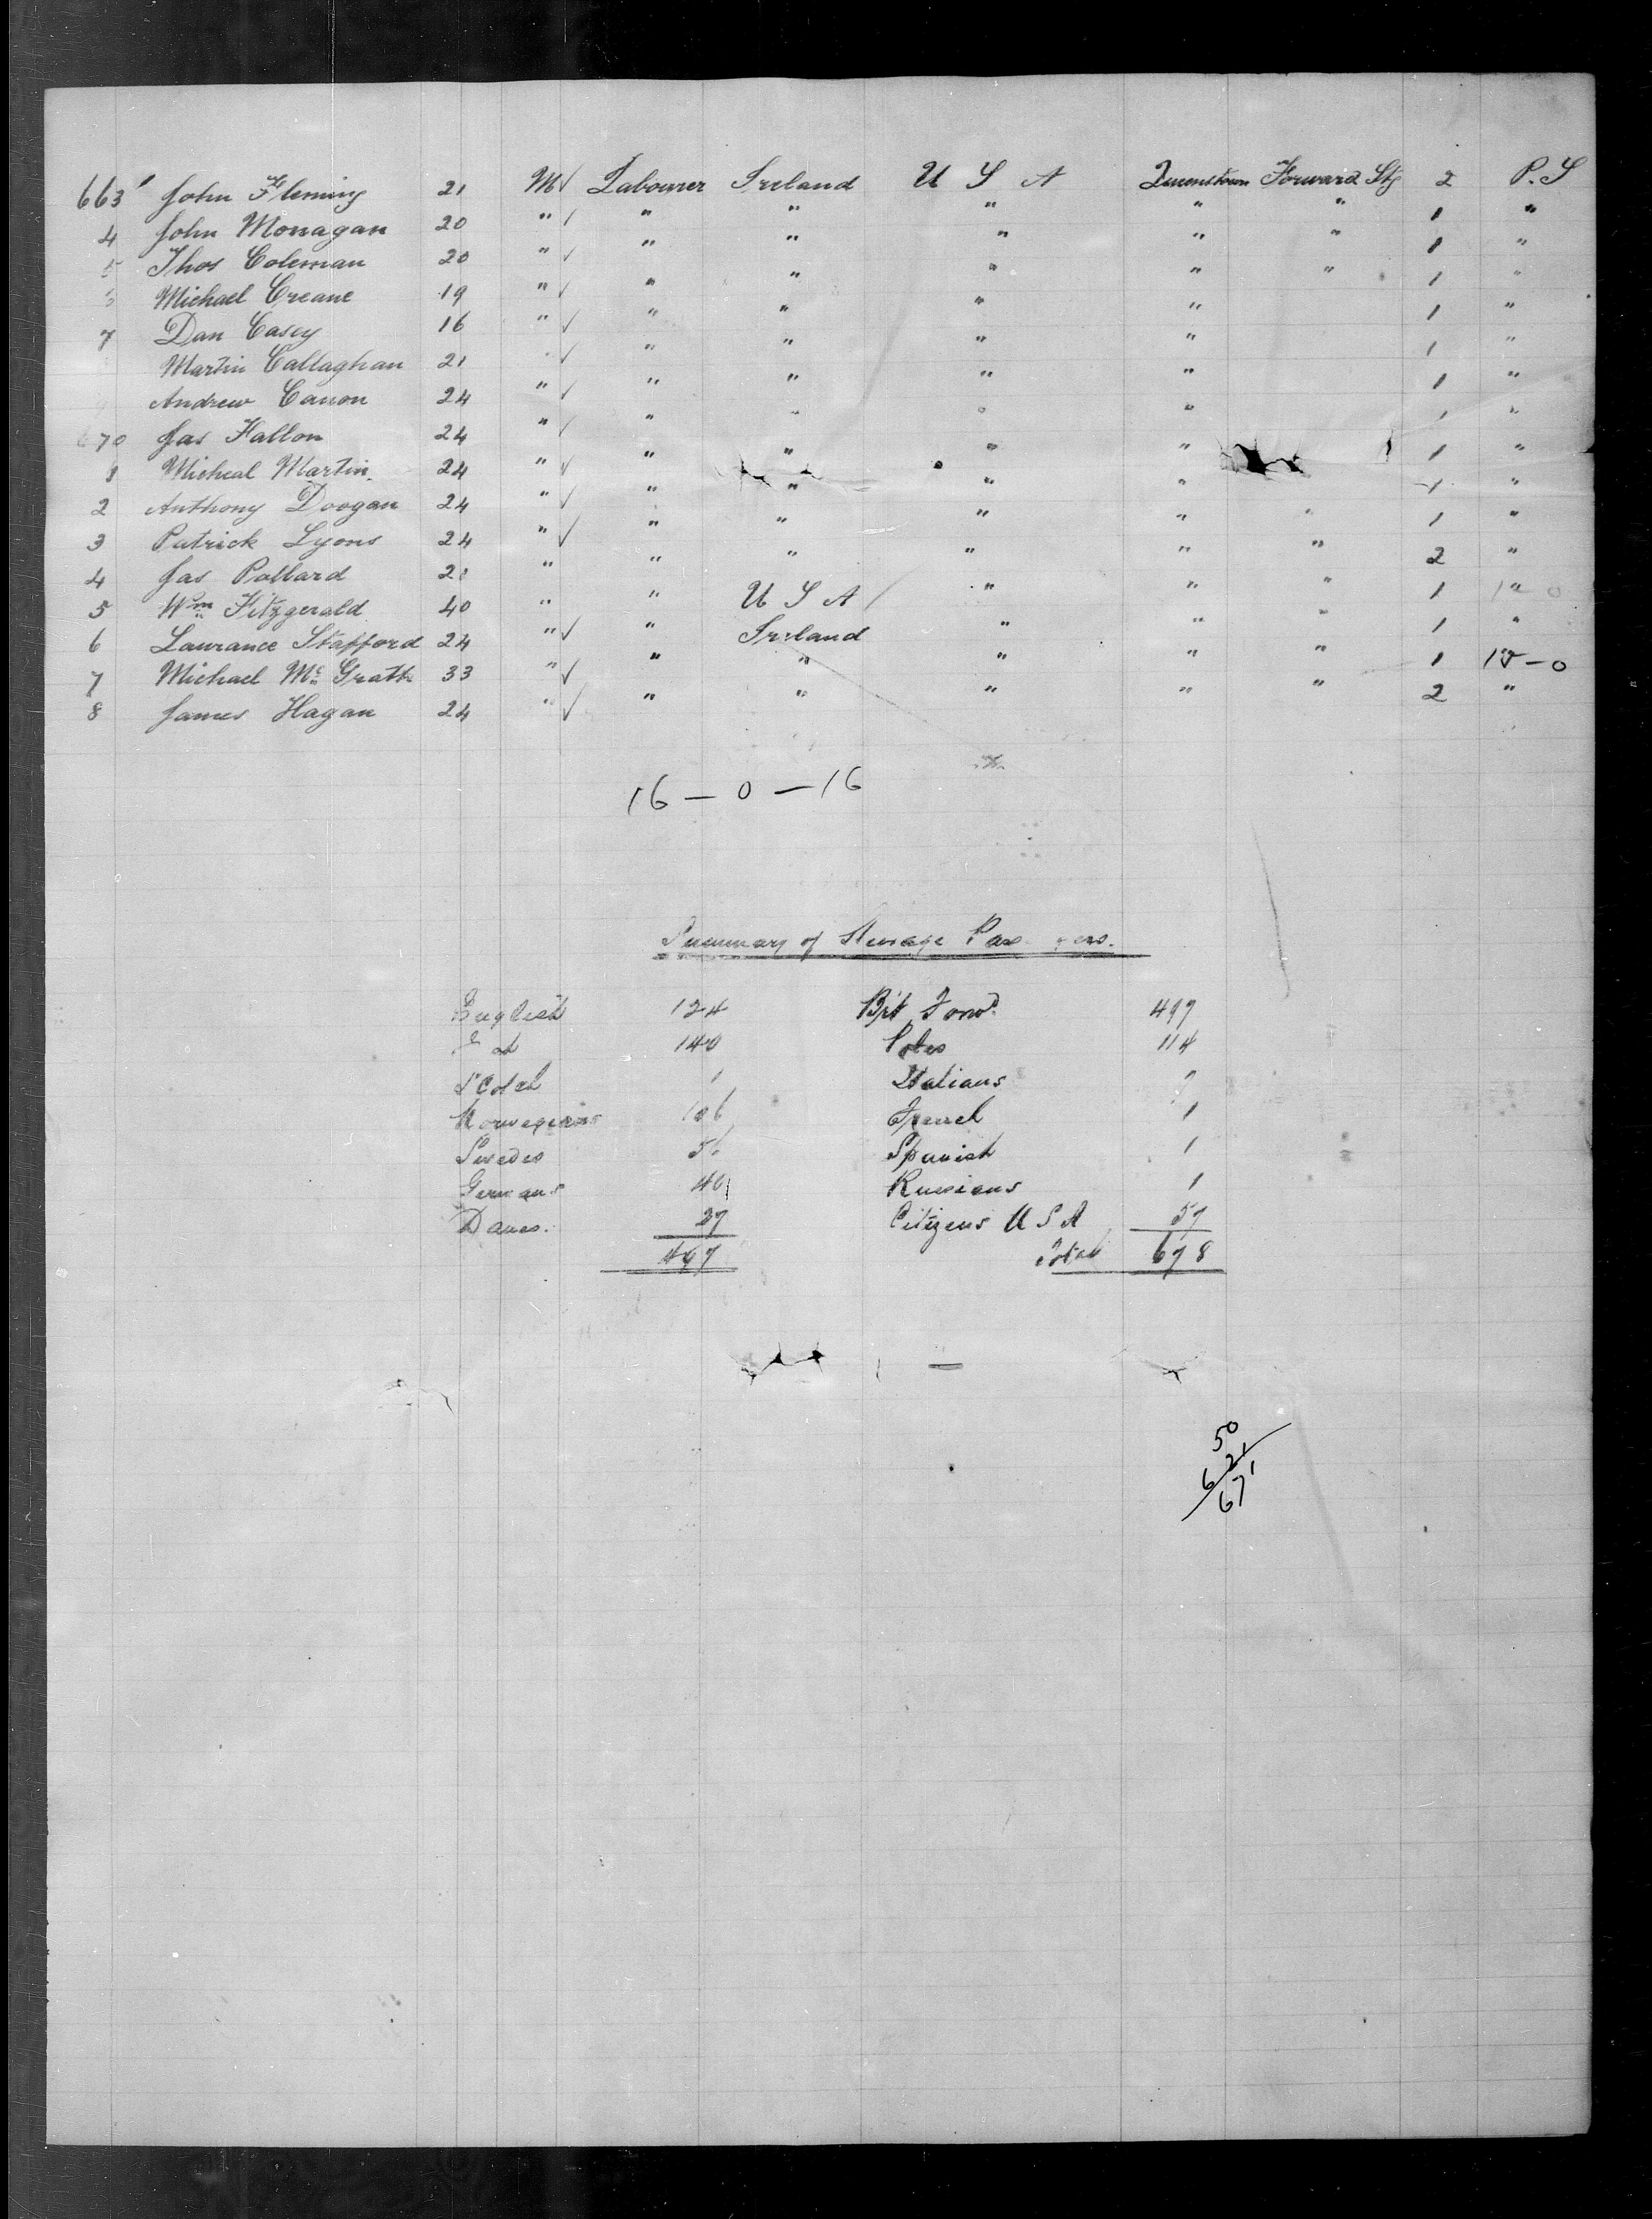 663 John Fleming 21 M √ Labourer Ireland U S A Queenstown Forward Stg 2 P. S
4 John Monagan 20 " √ " " " " " 1 "
5 Thos Coleman 20 " √ " " " " " 1 "
Michael Creane 19 " √ " " " " " 1 "
7 Dan Casey 16 " √ " " " " 1 "
Martin Callaghan 21 " √ " " " " 1 "
Andrew Canon 24 " √ " " " " 1 "
670 Jas Fallon 24 " √ " " " " 1 "
1 Micheal Martin. 24 " √ " " " " 1 "
2 Anthony Doogan 24 " √ " " " " 1 "
3 Patrick Lyons 24 " √ " " " " " 1 "
4 Jas Pollard 21 " " " " " " 2 "
5 Wm Fitzgerald 40 " " U S A " " " 1
6 Laurance Stafford 24 " √ " Ireland " " " 1 "
7 Michael Mc Grath 33 " √ " " " " " 1 15 - 0
8 James Hagan 24 " √ " " " " " 2 "
16 - 0 - 16
Summary of Steerage
English 124 Brt Forwd 497
140 Poles 114
Scotch 1 Italians 7
Norwegians 106 French 1
Swedes Spanish 1
Germans 40 Russians 1
Danes. 27 Citizens U S A 57
497 Total 678
50
621
671